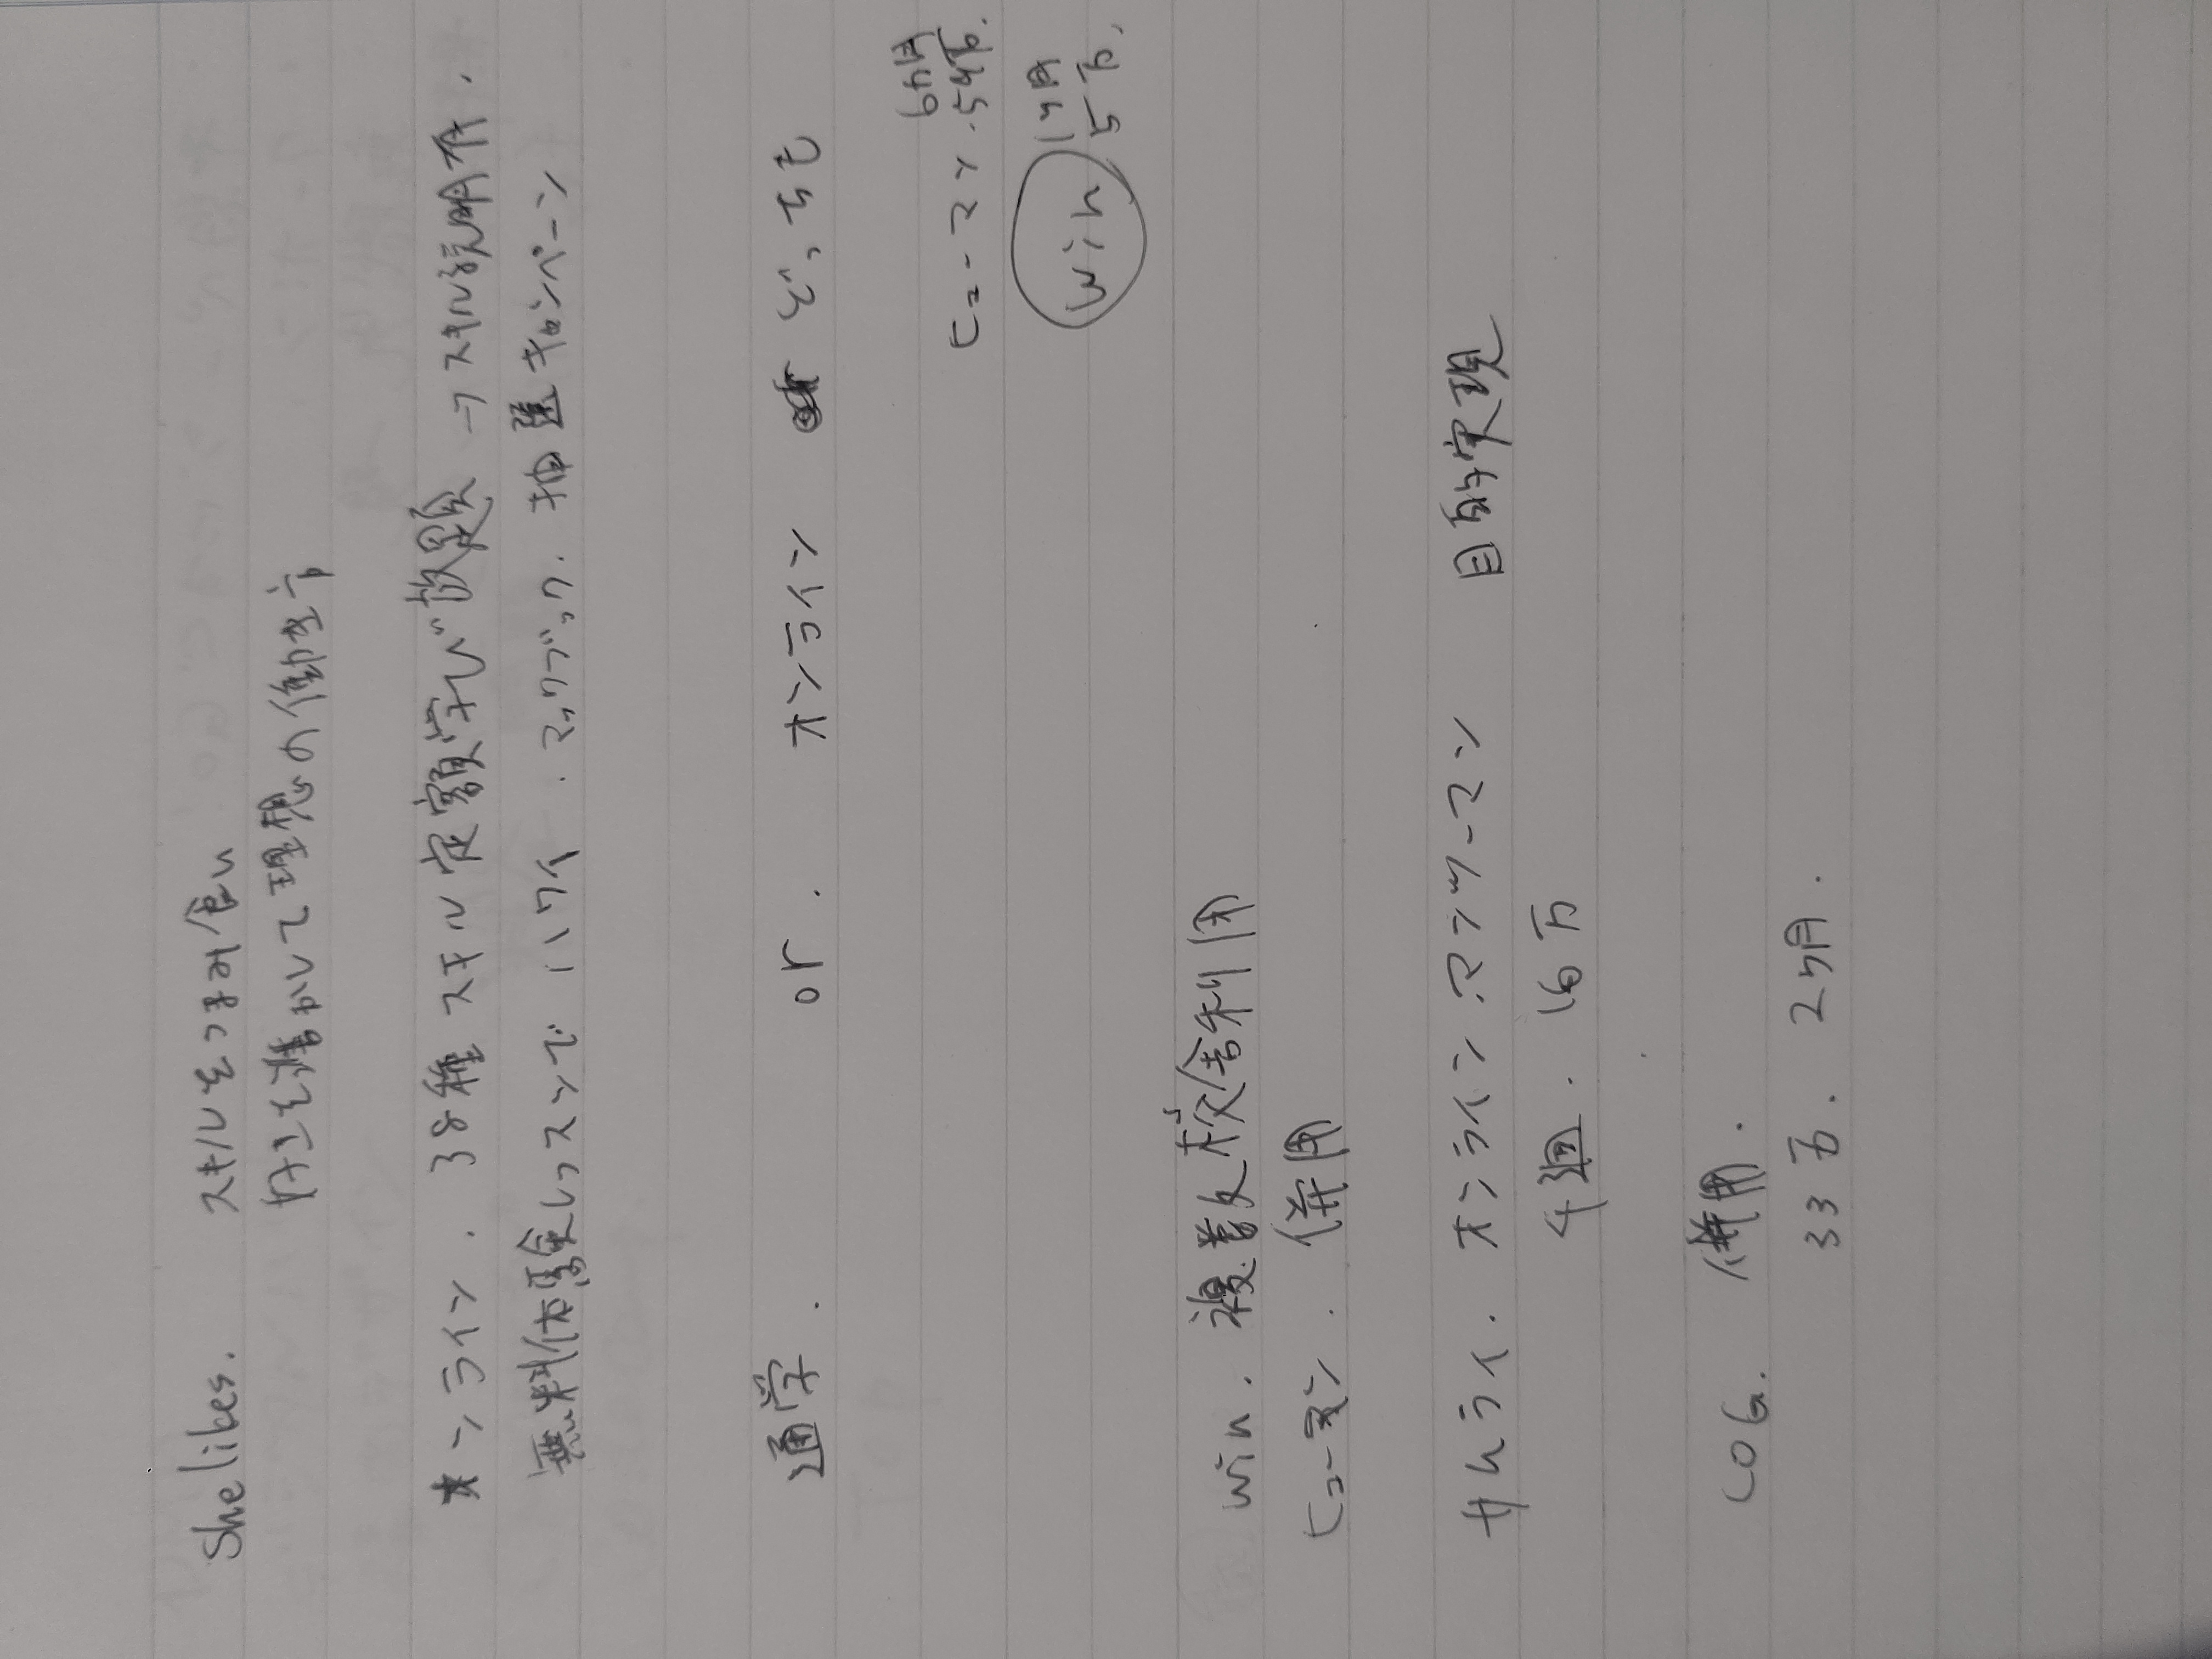 Shelibes. スキルをつけて/食い
好きを活かして理想の働き方
オンライン. 38種 スキル 定額学び放題 → スキル説明有.
無料体験レッスンで いける. マックブック. 抽選キャンペーン
通学. or. オンライン どちらも
ヒューマン. 6ヶ月 54万.
win 1ヶ月 5万.
win. 複数校校舎利用
ヒューマン. 併用
サムライ. オンライン マンツーマン 目的実現
4週. 16万
COG. 併用.
33万. 2ヶ月.